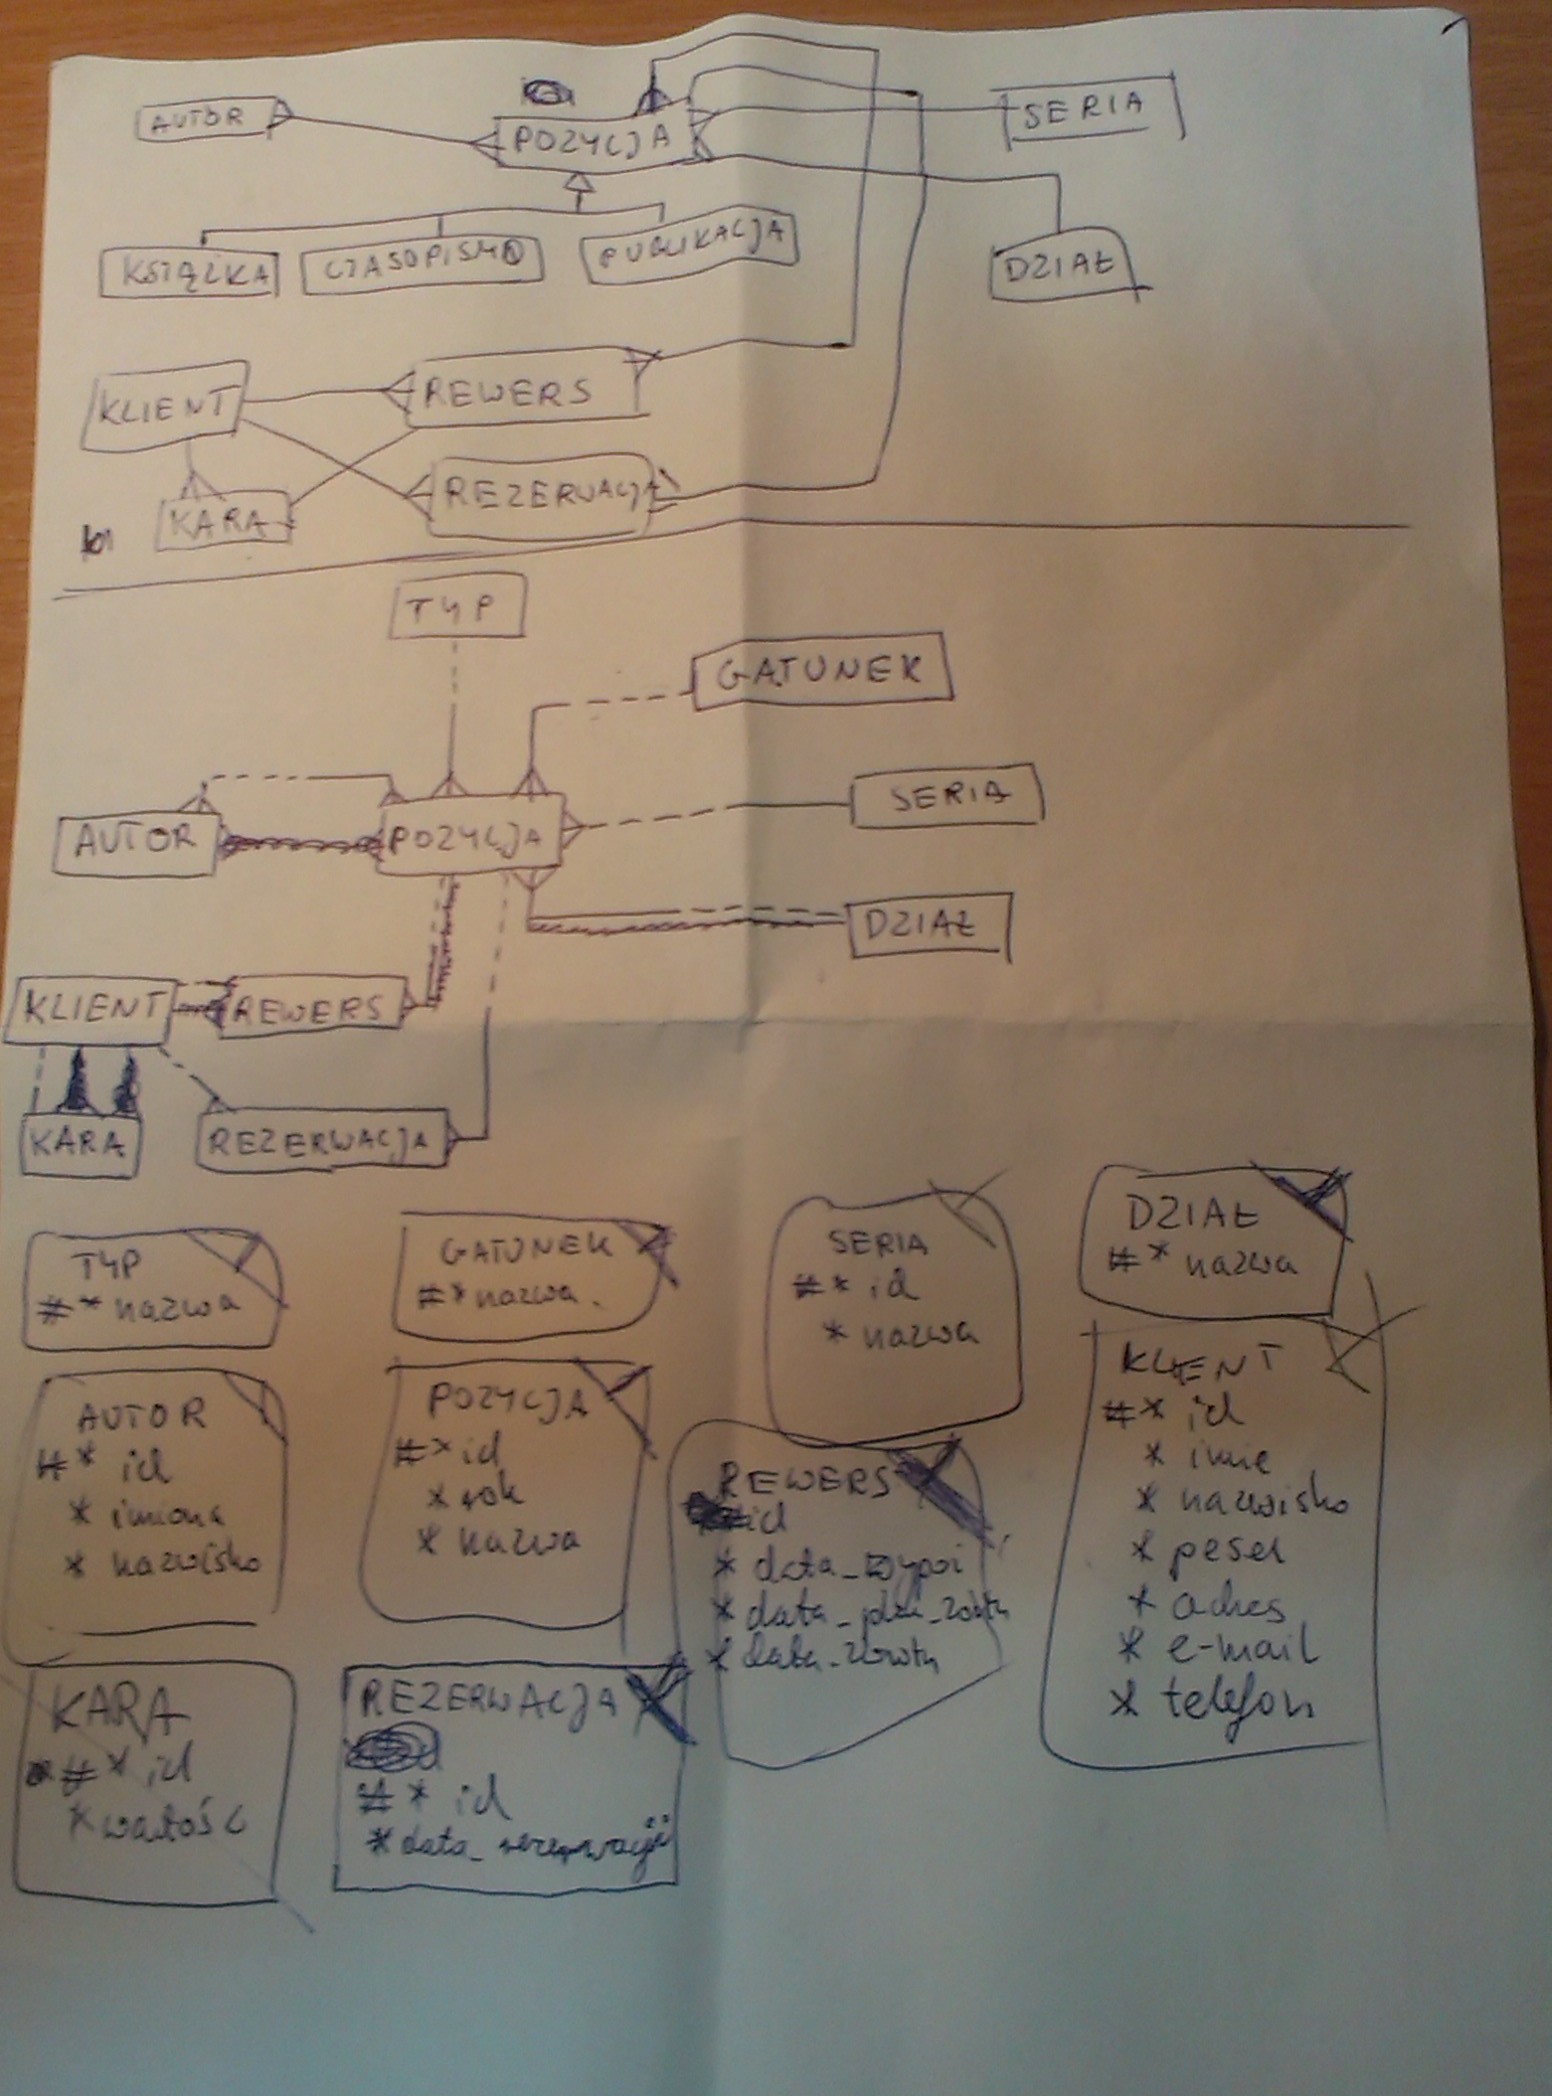 AUTOR
POZYCJA
SERIA
KSIĄŻKA
CZASOPISMO
PUBLIKACJA
DZIAŁ
KLIENT
REWERS
REZERWACJA
KARA
TYP
GATUNEK
SERIA
AUTOR
POZYCJA
DZIAŁ
KLIENT
REWERS
KARA
REZERWACJA
TYP
#* nazwa
GATUNEK
#* nazwa
SERIA
#* id
* nazwa
DZIAŁ
#* nazwa
AUTOR
#* id
* imiona
* nazwisko
POZYCJA
#* id
* rok
* nazwa
REWERS
id
* data_wypoż
* data_zwrotu
KLIENT
#* id
* imię
* nazwisko
* pesel
* adres
* e-mail
* telefon
KARA
#* id
* wartość
REZERWACJA
#* id
* data_rezerwacji